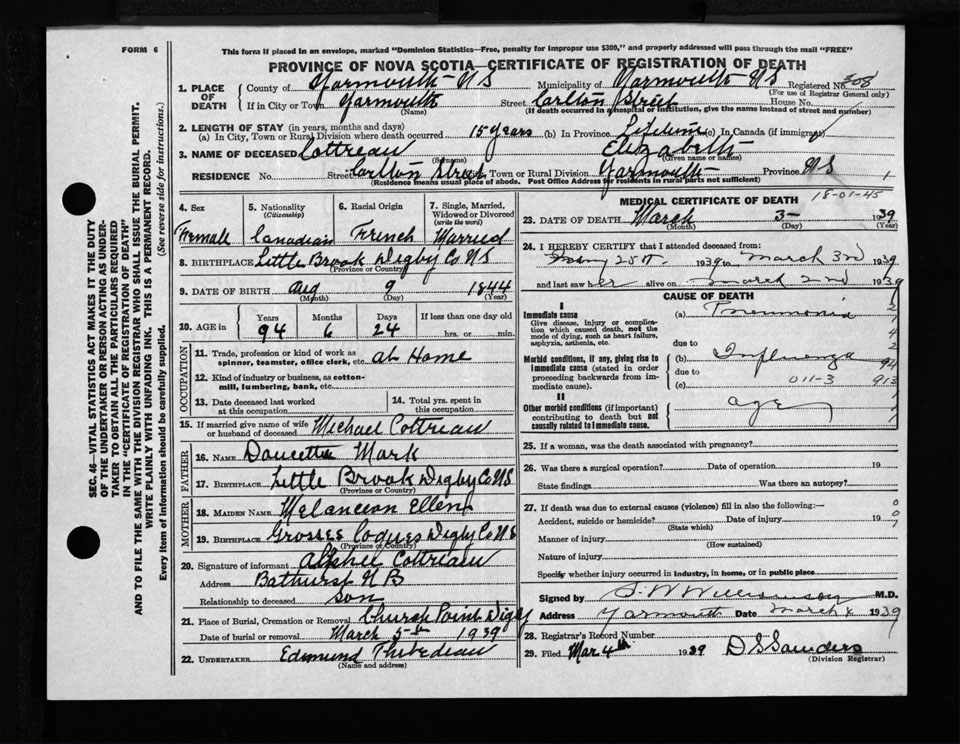 FORM 6
This form if placed in an envelope, marked "Dominion Statistics—Free, penalty for improper use $300," and properly addressed will pass through the mail "FREE"
PROVINCE OF NOVA SCOTIA—CERTIFICATE OF REGISTRATION OF DEATH
SEC. 46—VITAL STATISTICS ACT MAKES IT THE DUTY
OF THE UNDERTAKER OR PERSON ACTING AS UNDER-
TAKER TO OBTAIN ALL THE PARTICULARS REQUIRED
IN THE "CERTIFICATE OF REGISTRATION OF DEATH"
AND TO FILE THE SAME WITH THE DIVISION REGISTRAR WHO SHALL ISSUE THE BURIAL PERMIT.
WRITE PLAINLY WITH UNFADING INK. THIS IS A PERMANENT RECORD.
Every item of information should be carefully supplied. (See reverse side for instructions.)
1. PLACE OF DEATH County of Yarmouth N S Municipality of Yarmouth N S Registered No. 308
(For use of Registrar General only)
If in City or Town Yarmouth Street Carlton Street House No.
(Name) (If death occurred in a hospital or institution, give the name instead of street and number)
2. LENGTH OF STAY (in years, months and days)
(a) In City, Town or Rural Division where death occurred 15 years (b) In Province Lifetime (c) In Canada (if immigrant)
3. NAME OF DECEASED Cottreau Elizabeth
(Surname) (Given name or names)
RESIDENCE No. Street Carlton Street Town or Rural Division Yarmouth Province N S
(Residence means usual place of abode. Post Office Address for residents in rural parts not sufficient)
4. Sex Female
5. Nationality (Citizenship) Canadian
6. Racial Origin French
7. Single, Married, Widowed or Divorced (write the word) Married
8. BIRTHPLACE Little Brook Digby Co N S
(Province or Country)
9. DATE OF BIRTH Aug 9 1844
(Month) (Day) (Year)
10. AGE in Years Months Days If less than one day old
94 6 24 hrs. or min.
OCCUPATION
11. Trade, profession or kind of work as spinner, teamster, office clerk, etc. At Home
12. Kind of industry or business, as cotton-mill, lumbering, bank, etc.
13. Date deceased last worked at this occupation
14. Total yrs. spent in this occupation
15. If married give name of wife or husband of deceased Michael Cottreau
FATHER
16. NAME Doucette Mark
17. BIRTHPLACE Little Brook Digby Co N S
(Province or Country)
MOTHER
18. MAIDEN NAME Melancon Ellen
19. BIRTHPLACE Grosses Coques Digby Co N S
(Province or Country)
20. Signature of informant Cottreau
Address Bathurst N B
Relationship to deceased Son
21. Place of Burial, Cremation or Removal Church Point Digby
Date of burial or removal March 5th 1939
22. UNDERTAKER Edmund Thibedeau
(Name and address)
18-01-45
MEDICAL CERTIFICATE OF DEATH
23. DATE OF DEATH March 3 1939
(Month) (Day) (Year)
24. I HEREBY CERTIFY that I attended deceased from:
25th 1939 to March 3rd 1939
and last saw her alive on March 2nd 1939
CAUSE OF DEATH
I
Immediate cause
Give disease, injury or complication which caused death, not the mode of dying, such as heart failure, asphyxia, asthenia, etc.
(a) Pneumonia
due to
Morbid conditions, if any, giving rise to immediate cause (stated in order proceeding backwards from immediate cause).
(b) Influenza
due to
(c) 011-3
94
913
II
Other morbid conditions (if important) contributing to death but not causally related to immediate cause.
age
25. If a woman, was the death associated with pregnancy?
26. Was there a surgical operation? Date of operation 19
State findings Was there an autopsy?
27. If death was due to external causes (violence) fill in also the following:—
Accident, suicide or homicide? Date of injury 19
(State which)
Manner of injury
(How sustained)
Nature of injury
Specify whether injury occurred in industry, in home, or in public place
Signed by S. W. Williamson M.D.
Address Yarmouth Date March 4 1939
28. Registrar's Record Number
29. Filed Mar 4th 1939 D S Saunders
(Division Registrar)